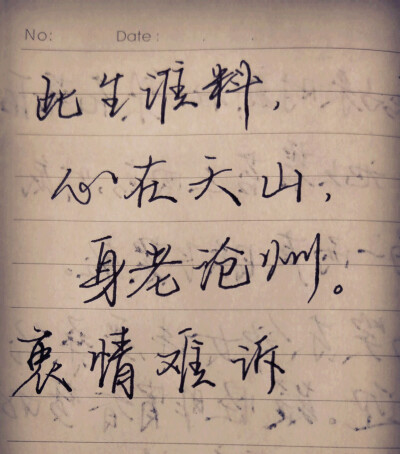 No: Date:
此生谁料，
心在天山，
身老沧洲。
衷情难诉